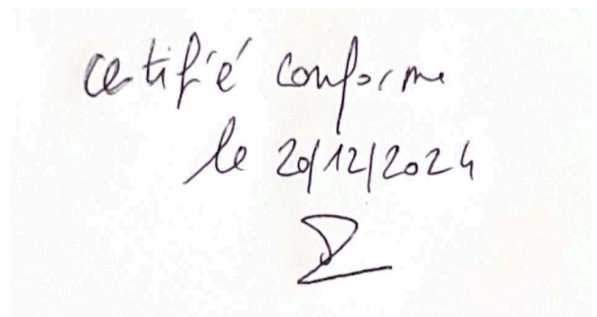 certifié conforme
le 20/12/2024